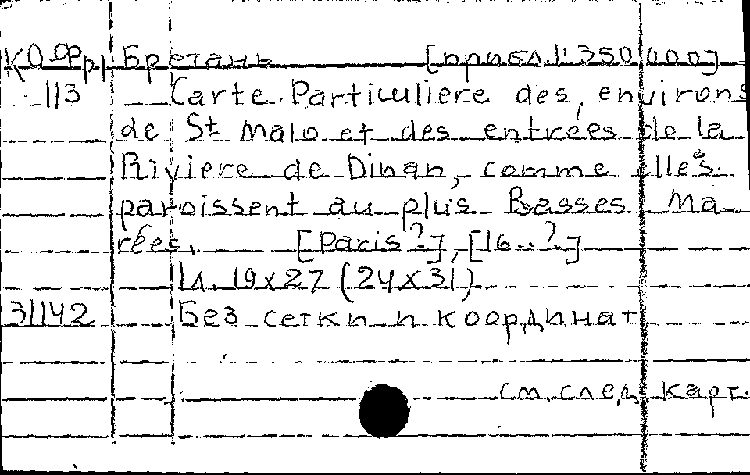 КО Фр Бретань [прибл. 1:350 000]
113 Carte Particuliere des environs
de St Malo et des entrées de la
Riviere de Dinan, comme elles
paroissent au plus Basses Ma
rées. [Paris?], [16..?]
1л. 19x27 (24x31)
31142 Без сетки и координат
см. след. карт.